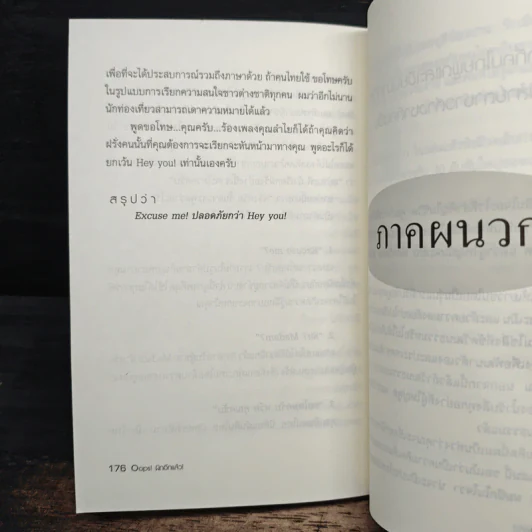 เพื่อที่จะได้ประสบการณ์รวมถึงภาษาด้วย ถ้าคนไทยใช้ ขอโทษครับ
ในรูปแบบการเรียกความสนใจชาวต่างชาติทุกคน ผมว่าอีกไม่นาน
นักท่องเที่ยวสามารถเดาความหมายได้แล้ว
พูดขอโทษ...คุณครับ...ร้องเพลงคุณลำไยก็ได้ถ้าคุณคิดว่า
ฝรั่งคนนั้นที่คุณต้องการจะเรียกจะหันหน้ามาทางคุณ พูดอะไรก็ได้
ยกเว้น Hey you! เท่านั้นเองครับ
สรุปว่า
Excuse me! ปลอดภัยกว่า Hey you!
176 Oops! ผิดอีกแล้ว!
ภาคผนวก